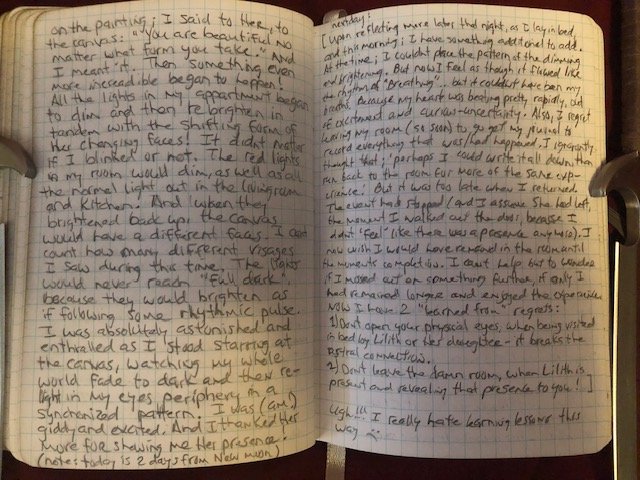 on the painting; I said to Her, to
the canvas: "you are beautiful no
matter what form you take." And
I meant it. Then something even
more increadible began to happen!
All the lights in my appartment began
to dim and then re-brighten in
tandem with the shifting form of
Her changing faces! It didnt matter
if I blinked or not. The red lights
in my room would dim, as well as all
the normal light out in the livingroom
and kitchen. And when they
brightened back up, the canvas
would have a different faces. I cant
count how many different visages
I saw during this time. The lights
would never reach "full dark",
because they would brighten as
if following some rhythmic pulse.
I was absolutely astonished and
enthralled as I stood starring at
the canvas, watching my whole
world fade to dark and then re-
light in my eyes periphery in a
synchronized pattern! I was (am!)
giddy and excited. And I thanked Her
more for showing me Her presence!
(note: today is 2 days from New moon)
next day:
[Upon reflecting more later that night, as I lay in bed,
and this morning; I have something additional to add.
At the time; I couldnt place the pattern of the dimming
and brightening. But now I feel as though it flowed like
the rhythm of "Breathing"... but it couldnt have been my
breaths. Because my heart was beating pretty rapidly, out
of excitement and curious-uncertainty. Also, I regret
leaving my room (so soon) to go get my journal to
record everything that was/had happened. I ignorantly
thought that; 'perhaps I could write it all down then
ran back to the room for more of the same exp-
erience.' But it was too late when I returned.
The event had stopped (and I assume She had left,
the moment I walked out the door, because I
didnt 'feel' like there was a presence anymore). I
now wish I would have remained in the room until
the moments completion. I cant help but to wonder
if I missed out on something further, if only I
had remained longer and enjoyed the experience
Now I have 2 "learned from" regrets:
1) Dont open your physical eyes, when being visited
in bed by Lilith or Her daughters - it breaks the
astral connection.
2) Dont leave the damn room, when Lilith is
present and revealing that presence to you! ]
Ugh!!! I really hate learning lessons this
way :(